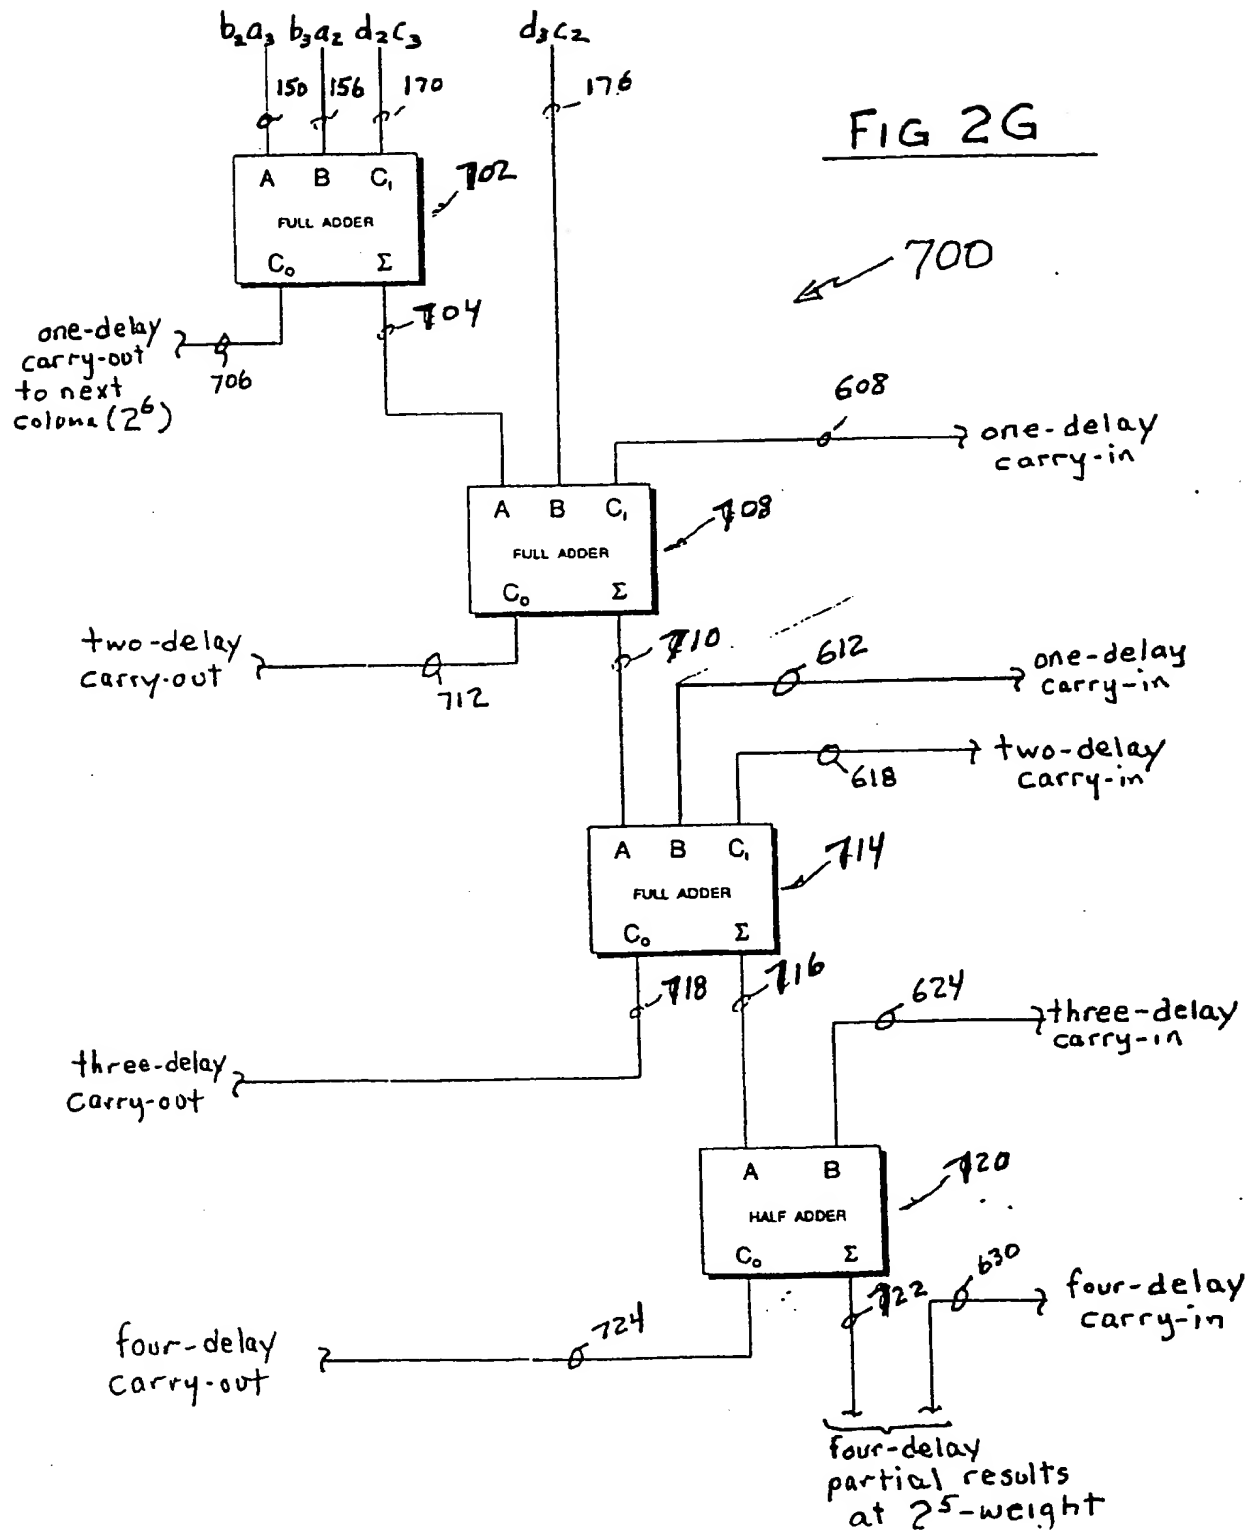 b₂a₃ b₃a₂ d₂c₃ d₃c₂
150 156 170 176
FIG 2G
A B C₁
702
FULL ADDER
C₀ Σ
700
704
one-delay
carry-out
to next
colomn (2⁶)
706
608
one-delay
carry-in
A B C₁
708
FULL ADDER
C₀ Σ
two-delay
carry-out
712
710
612
one-delay
carry-in
two-delay
carry-in
618
A B C₁
714
FULL ADDER
C₀ Σ
718
716
624
three-delay
carry-in
three-delay
carry-out
A B
720
HALF ADDER
C₀ Σ
630
722
four-delay
carry-in
724
four-delay
carry-out
four-delay
partial results
at 2⁵-weight